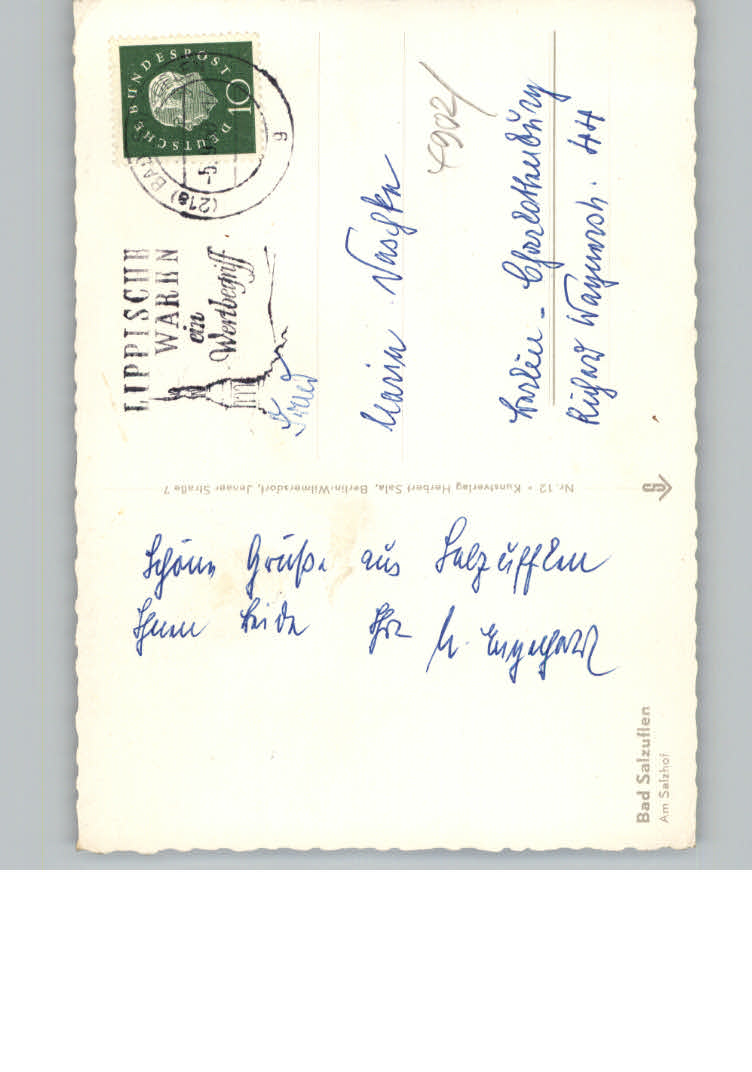 DEUTSCHE BUNDESPOST
10
(21a) BAD
-5.
g
LIPPISCHE
WAREN
ein
Wertbegriff
4902/
Maria Naschka
Berlin - Charlottenburg
Richard Wagnerstr. 44
Nr. 12 • Kunstverlag Herbert Sala, Berlin-Wilmersdorf, Jenaer Straße 7
Schöne Grüße aus Salzufflen
Ihnen beide Ihr M. Engelhardt
Bad Salzuflen
Am Salzhof